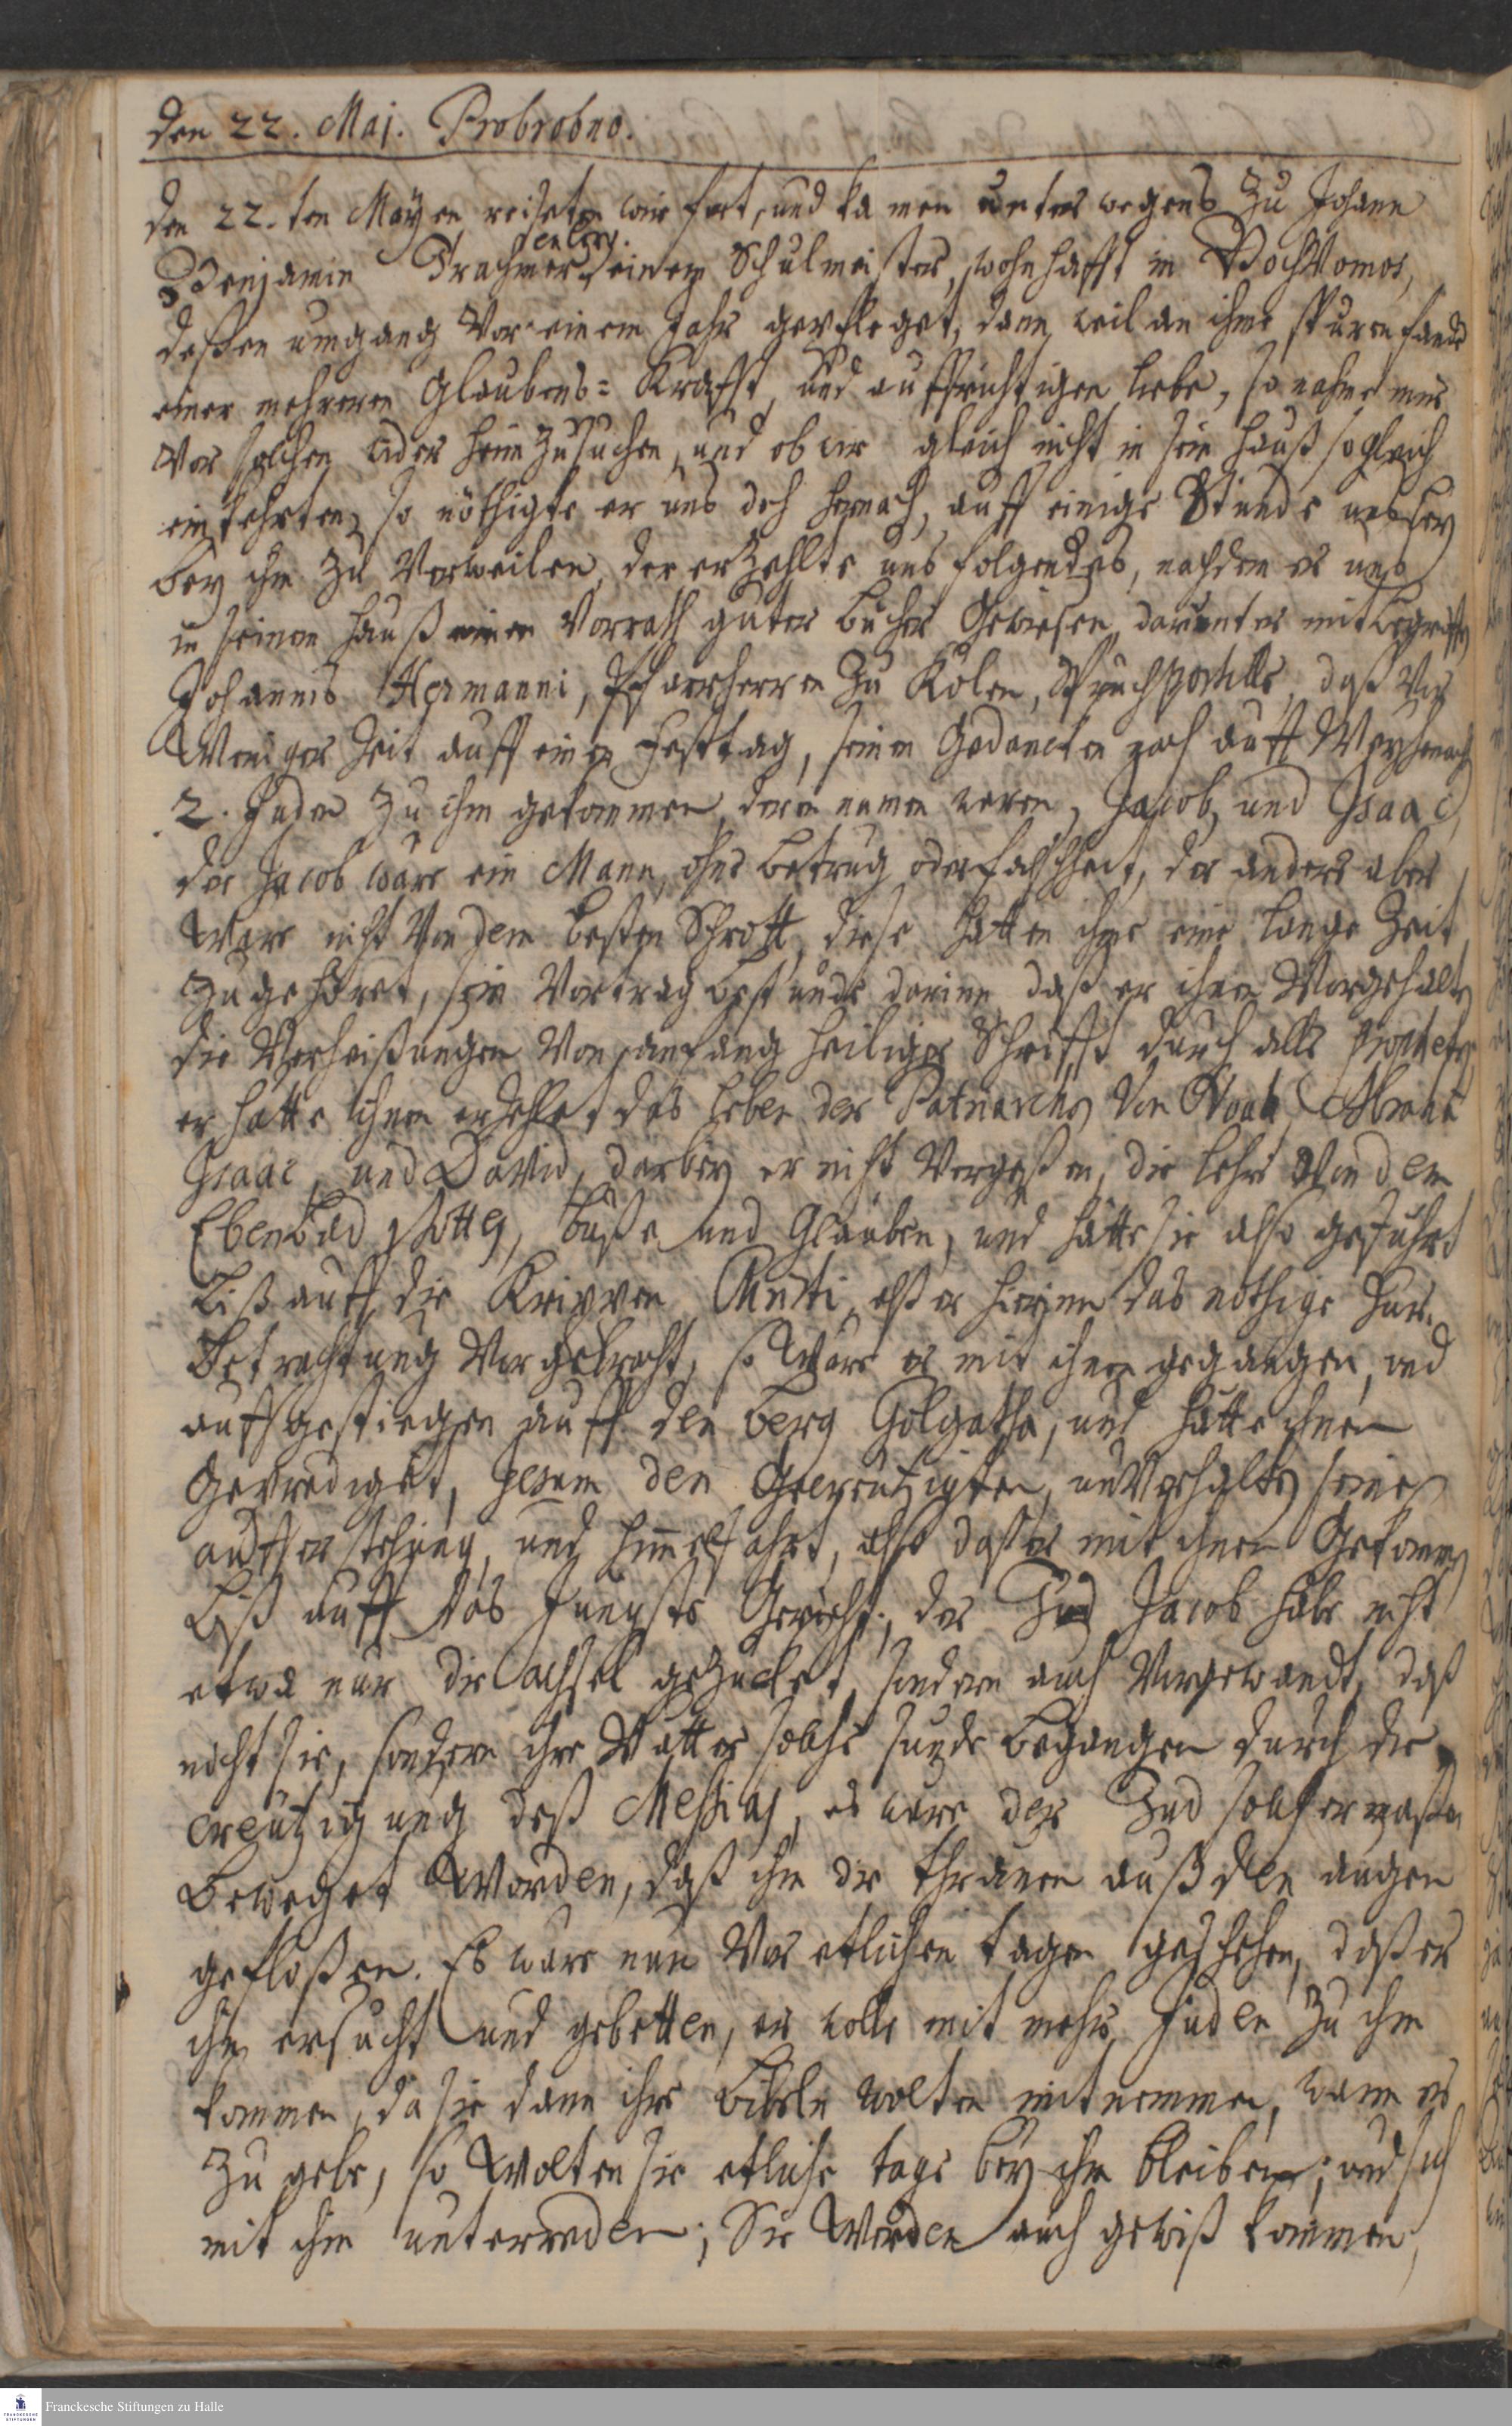 den 22. Maj. Probrobno.
den 22.ten Mayen reiseten wir fort, und kamen unterwegens zu Johann
Benjamin einem Schulmeister, wohnhafft in
deßen umgang vor einem Jahr gepfleget, dann weil an ihme spuren fande
einer mehreren Glaubens=Krafft, und auffrichtigen liebe, so nahme mir
vor solchen wider heim zu suchen, und ob wir gleich nicht in sein hauß sogleich
einkehrten, so nöthigte er uns doch hernach, auff einige Stunde
bey ihm zu verweilen, der erzehlte uns folgendes, nachdem er uns
in seinem hauß einen Vorrath guter bücher gewiesen, darunter mitbegriffen
Johannis Hermanni, Pfarrherren zu Kölen, Spruchpostille, daß vor
Weniger Zeit auff einen Festtag, seinen Gedancken nach auff Weyhenach
2. Juden zu ihm gekommen, deren namen waren, Jacob, und Isaac,
der Jacob ware ein Mann, ohne betrug oder falschheit, der andere aber
Ware nicht von dem besten Schrott, diese hatten ihme eine lange Zeit
zugehöret, sein Vortrag bestunde darinn daß er ihnen Vorgehalten
die Verheißungen von anfang heiliger Schrifft durch alle Propheten
er hatte ihnen erzehlet das leben der Patriarchen von Noah, Abraha
Isaac, und David, darbey er nicht vergeßen, die lehre von dem
Ebenbild Gottes, buße und Glauben, und hätte sie also geführt
biß auff die Krippen Christi, alß er hierinn das nöthige zur
Betrachtung vorgebracht, so wäre er mit ihnen gegangen, und
auffgestiegen auff den berg Golgatha, und hätte ihnen
geprediget, Jesum den Gecreutzigten, seine
aufferstehung, und himmelfahrt, also daß er mit ihnen gekommen
biß auff das Jüngste Gericht, der Jud Jacob habe nicht
etwa nur die achsel gezucket, sondern auch vorgewandt, daß
nicht sie, sondern ihre Vätter solche sunde begangen durch die
creutzigung deß Messias, es ware der Jud solchermaßen
beweget worden, daß ihm die thränen auß den augen
gefloßen. Es ware nun vor etlichen tagen geschehen, daß er
ihn ersucht und gebetten, er wolle mit mehr Juden zu ihm
kommen, da sie dann ihre bibeln wolten mitnemmen, wann er
zu gebe, so wolten sie etliche tage bey ihm bleiben, und sich
mit ihm unterreden; Sie werden auch gewiß kommen,
Franckesche Stiftungen zu Halle